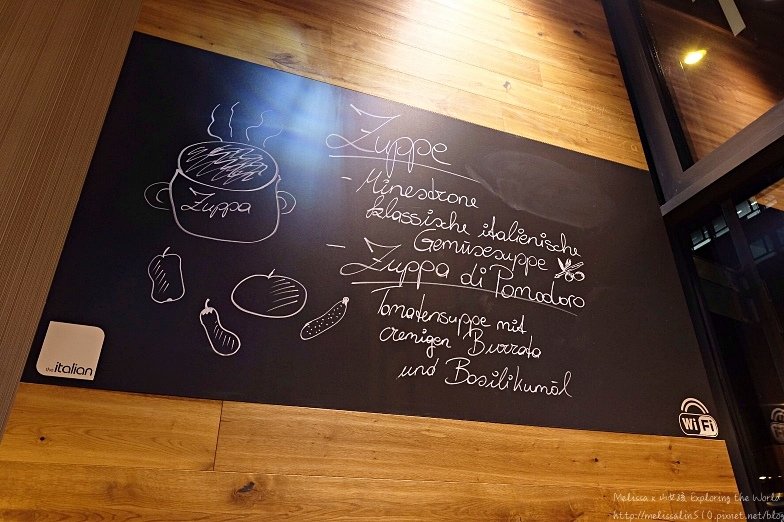 Zuppa
Zuppe
- Minestrone
klassische italienische
Gemüsesuppe
- Zuppa di Pomodoro
Tomatensuppe mit
cremigen Burrata
und Basilikumöl
the italian
WiFi
Melissa x 山女孩 Exploring the World
http://melissalin510.pixnet.net/blog